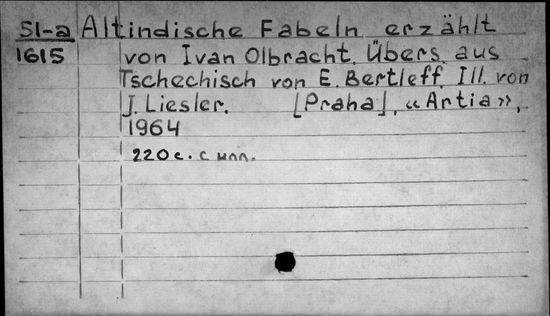 Sl-a Altindische Fabeln, erzählt
1615 von Ivan Olbracht. Übers. aus
Tschechisch von E. Bertleff. Ill. von
J. Liesler. [Praha], «Artia»,
1964
220 c. с илл.